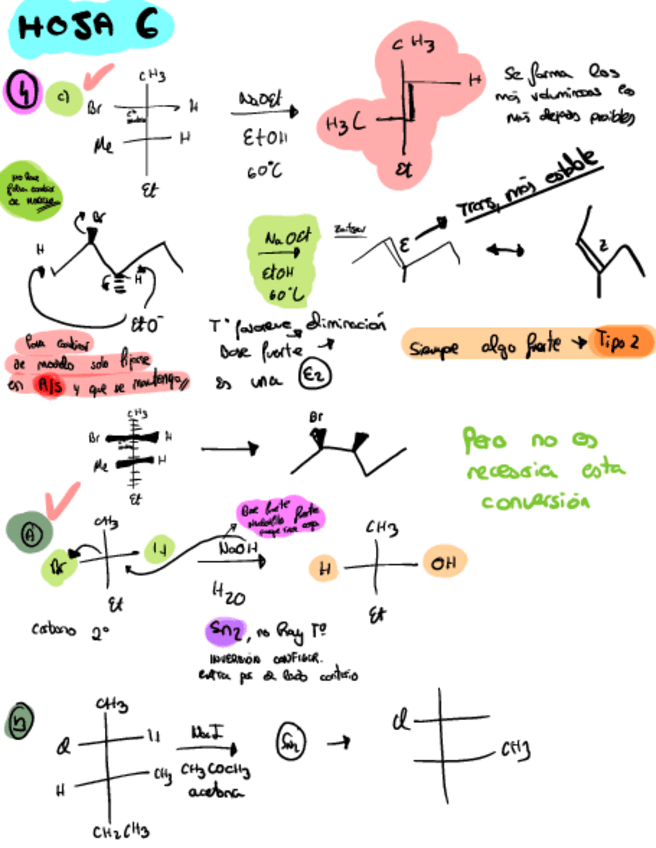 HOJA 6
4 c)
CH3
Br H
Me H
Et
NaOEt
EtOH
60°C
CH3
H
H3C
Et
Se forma los
más voluminosos lo
más alejados posibles
No hace
falta cambiar
de modelo
Br
H
H
EtO⁻
NaOEt
EtOH
60°C
Zaitsev
E
Trans, más estable
Z
Para cambiar
de modelo solo fijarse
en R/S y que se mantenga
T° favorece eliminación
Base fuerte →
es una E2
Siempre algo fuerte → Tipo 2
CH3
Br H
Me H
Et
Br
Pero no es
necesaria esta
conversión
A
CH3
Br H
Et
Carbono 2°
Base fuerte
nucleófilo fuerte
NaOH
H2O
CH3
H OH
Et
SN2, no hay Tº
INVERSIÓN CONFIGUR.
entra por el lado contrario
b
CH3
Cl H
H CH3
CH2CH3
NaI
CH3COCH3
acetona
SN2 →
Cl
CH3